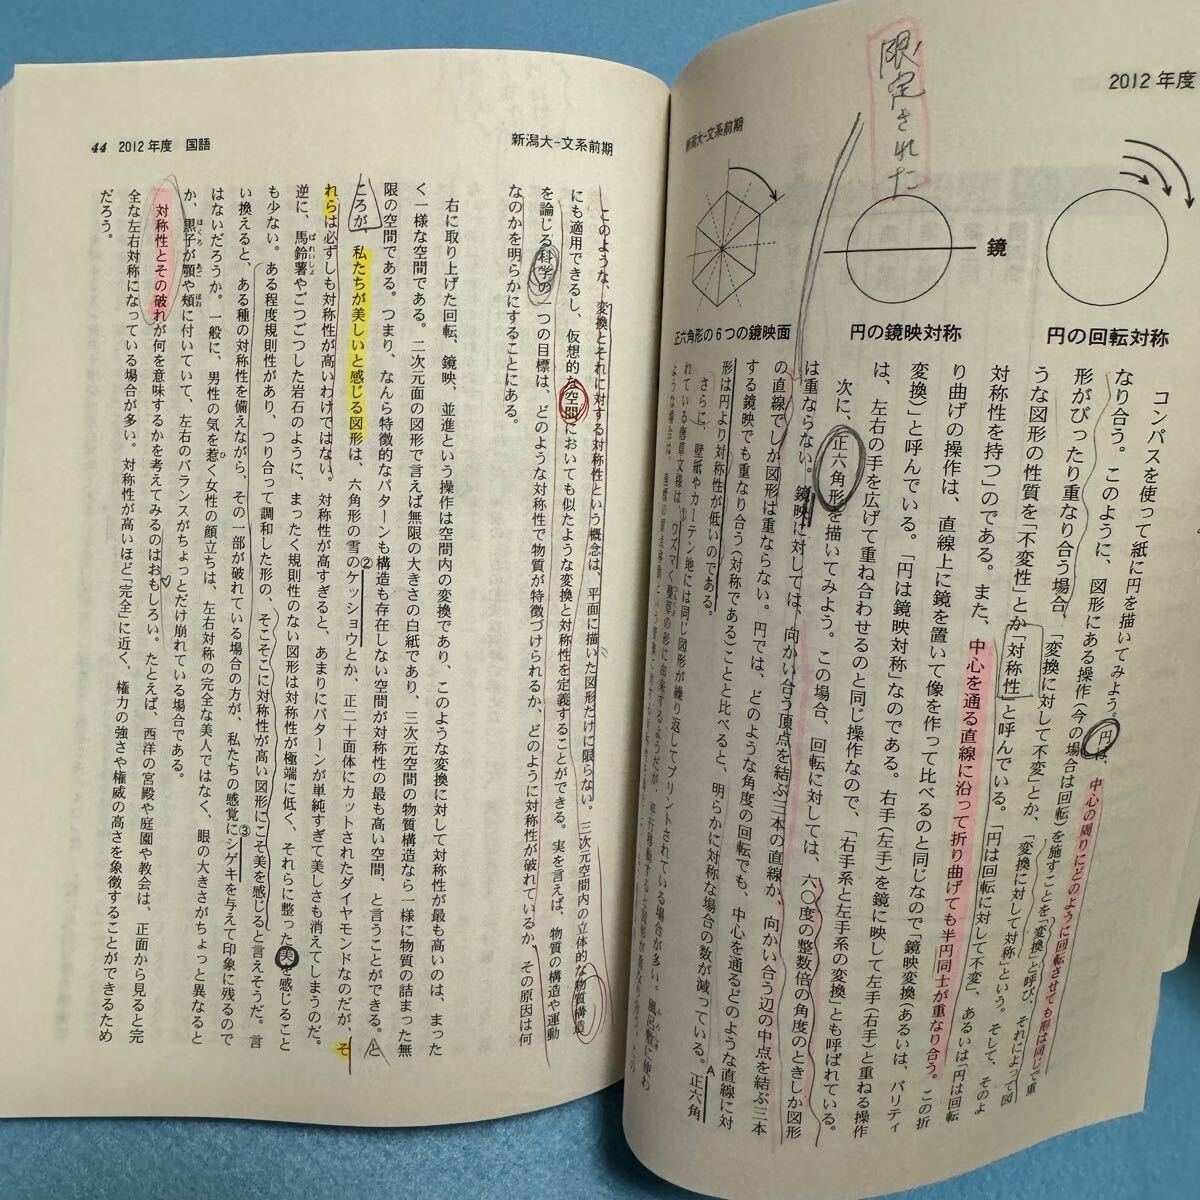 2012年度
限定された
新潟大-文系前期
鏡
正六角形の6つの鏡映面
円の鏡映対称
円の回転対称
コンパスを使って紙に円を描いてみよう。円は、中心の周りにどのように回転させても形は同じで重
なり合う。このように、図形にある操作(今の場合は回転)を施すことを「変換」と呼び、それによって図
形がぴったり重なり合う場合、「変換に対して不変」とか、「変換に対して対称」という。そして、そのよ
うな図形の性質を「不変性」とか「対称性」と呼んでいる。「円は回転に対して不変」、あるいは「円は回転
対称性を持つ」のである。また、中心を通る直線に沿って折り曲げても半円同士が重なり合う。この折
り曲げの操作は、直線上に鏡を置いて像を作って比べるのと同じなので「鏡映変換(あるいは、パリティ
変換)」と呼んでいる。「円は鏡映対称」なのである。右手(左手)を鏡に映して左手(右手)と重ねる操作
は、左右の手を広げて重ね合わせるのと同じ操作なので、「右手系と左手系の変換」とも呼ばれている。
次に、正六角形を描いてみよう。この場合、回転に対しては、六〇度の整数倍の角度のときしか図形
は重ならない。鏡映に対しては、向かい合う頂点を結ぶ三本の直線か、向かい合う辺の中点を結ぶ三本
の直線でしか図形は重ならない。円では、どのような角度の回転でも、中心を通るどのような直線に対
する鏡映でも重なり合う(対称である)ことと比べると、明らかに対称な場合の数が減っている。A正六角
形は円より対称性が低いのである。
さらに、壁紙やカーテン地には同じ図形が繰り返してプリントされている場合が多い。風呂敷に使わ
れている唐草文様は、①ウズマく蔓草の形に由来するようだが、
44 2012年度 国語
新潟大-文系前期
このような、変換とそれに対する対称性という概念は、平面に描いた図形だけに限らない。三次元空間内の立体的な物質構造
にも適用できるし、仮想的な空間においても似たような変換と対称性を定義することができる。実を言えば、物質の構造や運動
を論じる科学の一つの目標は、どのような対称性で物質が特徴づけられるか、どのように対称性が破れているか、その原因は何
なのかを明らかにすることにある。
右に取り上げた回転、鏡映、並進という操作は空間内の変換であり、このような変換に対して対称性が最も高いのは、まった
く一様な空間である。二次元面の図形で言えば無限の大きさの白紙であり、三次元空間の物質構造なら一様に物質の詰まった無
限の空間である。つまり、なんら特徴的なパターンも構造も存在しない空間が対称性の最も高い空間、と言うことができる。と
ころが、私たちが美しいと感じる図形は、六角形の雪の②ケッショウとか、正二十面体にカットされたダイヤモンドなのだが、そ
れらは必ずしも対称性が高いわけではない。対称性が高すぎると、あまりにパターンが単純すぎて美しさも消えてしまうのだ。
逆に、馬鈴薯やごつごつした岩石のように、まったく規則性のない図形は対称性が極端に低く、それらに整った美を感じること
も少ない。ある程度規則性があり、つり合って調和した形の、そこそこに対称性が高い図形にこそ美を感じると言えそうだ。言
い換えると、ある種の対称性を備えながら、その一部が破れている場合の方が、私たちの感覚に③シゲキを与えて印象に残るので
はないだろうか。一般に、男性の気を惹く女性の顔立ちは、左右対称の完全な美人ではなく、眼の大きさがちょっと異なると
か、黒子が顎や頬に付いていて、左右のバランスがちょっとだけ崩れている場合である。
対称性とその破れが何を意味するかを考えてみるのはおもしろい。たとえば、西洋の宮殿や庭園や教会は、正面から見ると完
全な左右対称になっている場合が多い。対称性が高いほど「完全」に近く、権力の強さや権威の高さを象徴することができるため
だろう。